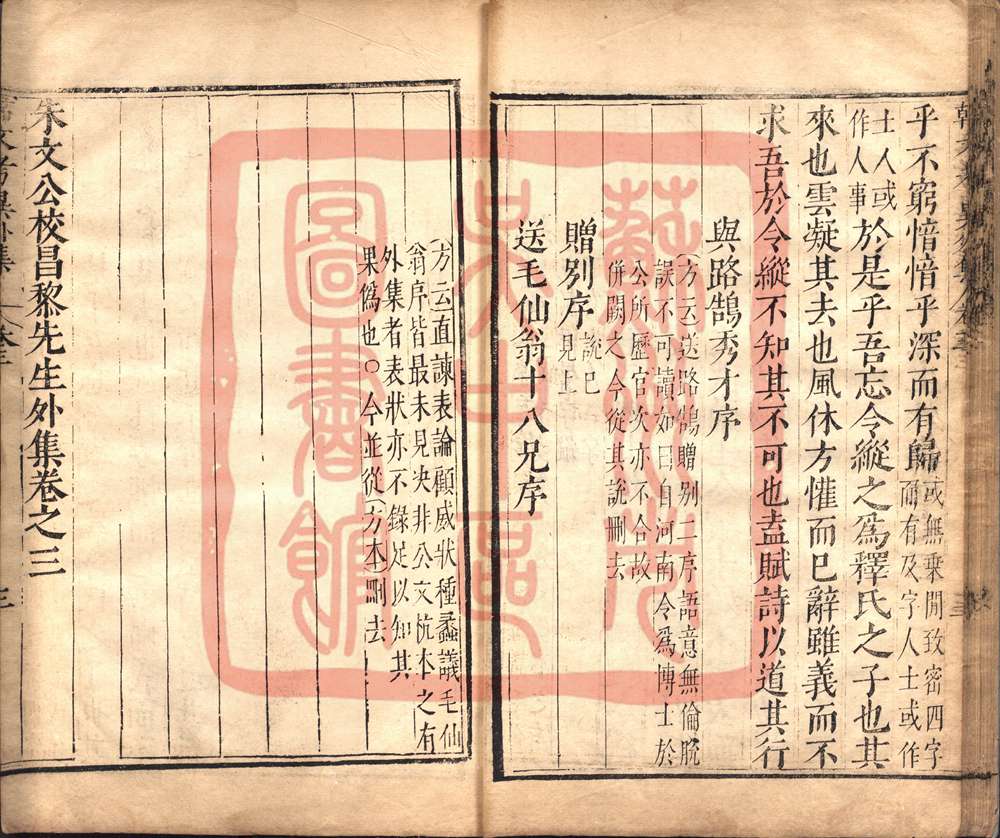 乎不窮愔愔乎深而有歸或無乗閒致密四字
而有及字人士或作
士人或
作人事於是乎吾忘令縱之爲釋氏之子也其
來也雲凝其去也風休方懽而已辭雖義而不
求吾於令縱不知其不可也盍賦詩以道其行
與路鵠秀才序
方云送路鵠贈别二序語意無倫脱
誤不可讀如曰自河南令爲博士於
公所歷官次亦不合故
併闕之今從其說刪去
贈别序說已
見上
送毛仙翁十八兄序
方云直諫表論顧威狀種蠡議毛仙
翁序皆最末見决非公文杭本之有
外集者表狀亦不錄足以知其
果僞也○今並從方本刪去
朱文公校昌黎先生外集卷之三
蘇州大學
炎黃區
圖書館